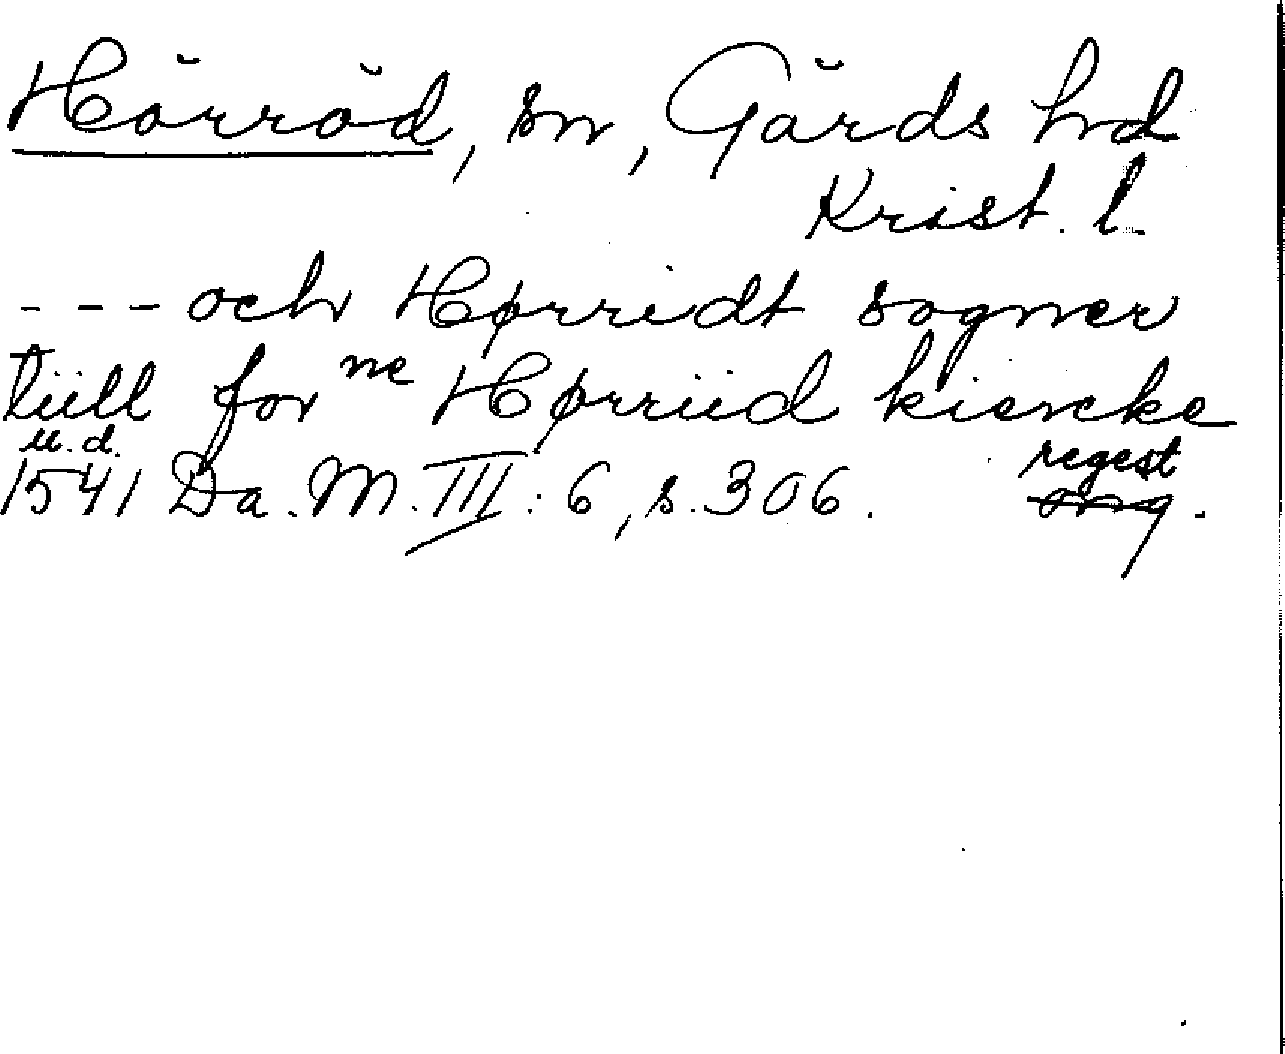 Hörröd, sn, Gärds hrd
Krist. l.
--- och Hørridt sogner
tiill for ne Hørriid kiercke
u.d.
1541 Da. M. III: 6, s. 306. regest
orig.